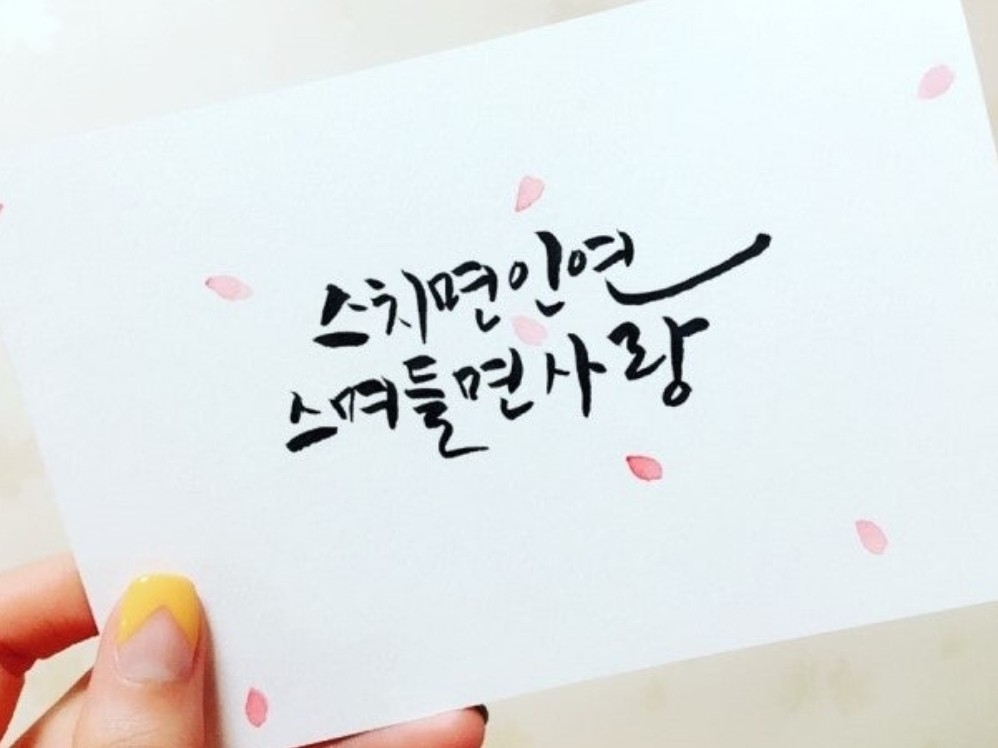 스치면인연
스며들면사랑